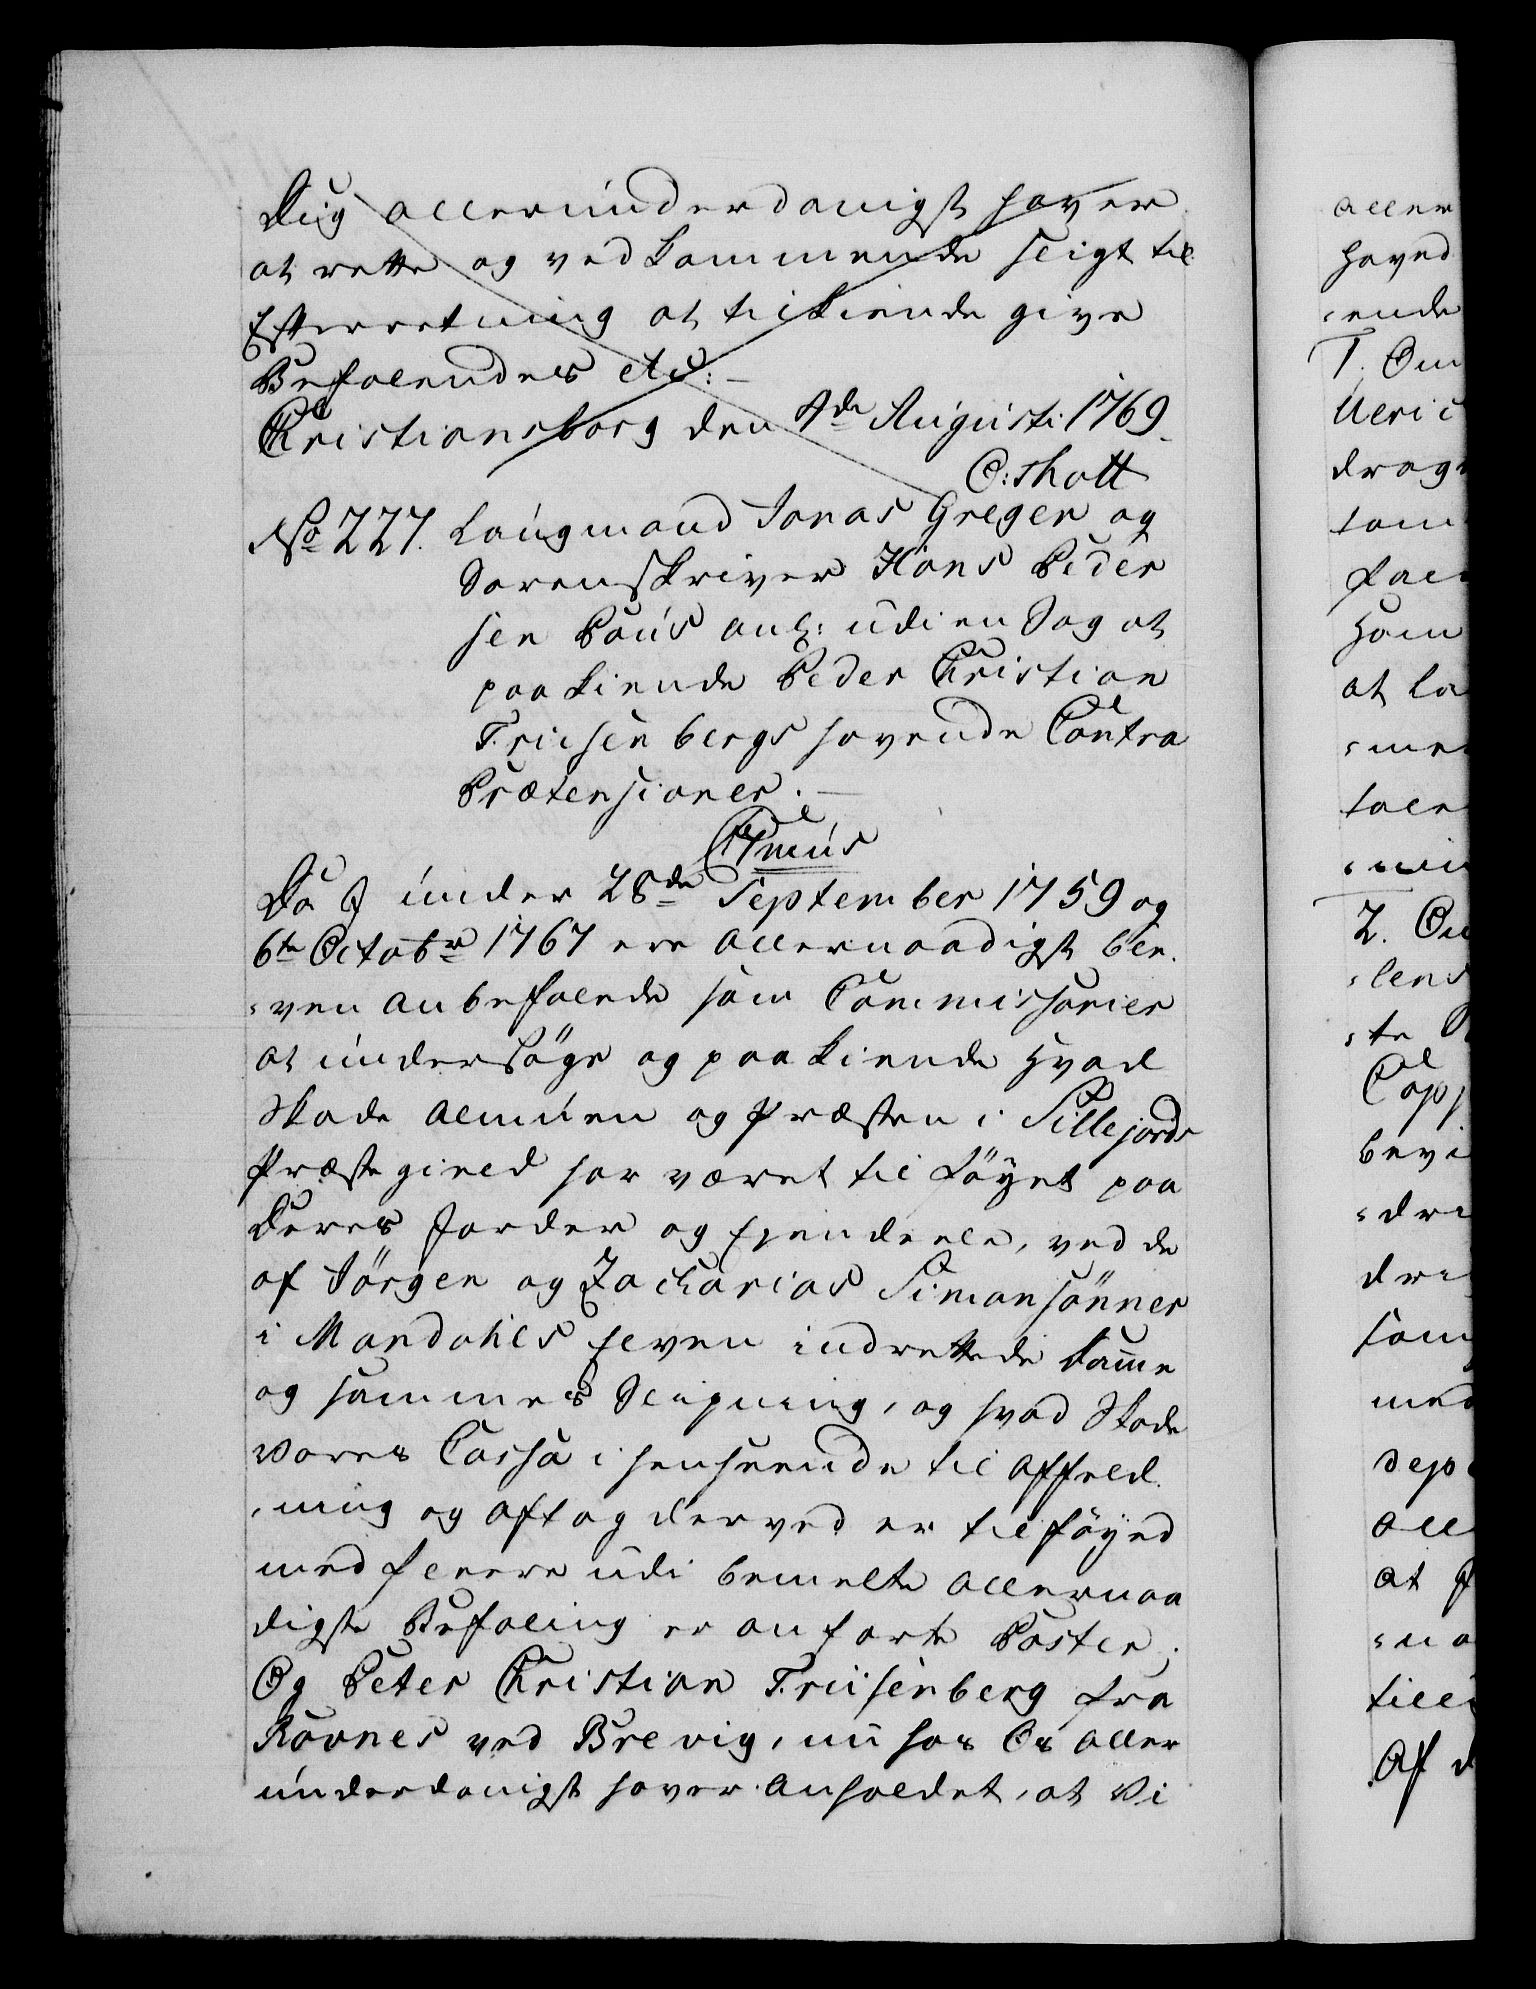 Dig allerunderdanigst haver
at rette og vedkommende sligt til
Efterretning at tilkiende give
Befalendes etc: –
Christiansborg den 4de Augusti 1769.
O: Thott
No 227. Laugmand Jonas Greger og
Sorenskriver Hans Peder
sen Paus anl: udi en Sag at
paakiende Peder Christian
Friisenbergs havende Contra
Prætensioner. –
C 7mus
Da I under 28de September 1759 og
6te Octobr 1767 ere allernaadigst ble¬
¬ven anbefalede som Commissarier
at undersøge og paakiende hvad
Skade Almuen og Præsten i Sillejords
Præstegield har været tilføyet paa
Deres Jorder og Ejendeele, ved de
af Jörgen og Zacharias Simonsönner
i Mandahls Elven indrettede Damme
og sammes Stigning, og hvad Skade
Vores Cassa i henseende til Affæld¬
¬ning og Aftag derved er tilføyed
med fleere udi bemelte allernaa
digste Befaling er anførte Poster;
Og Peter Christian Friisenberg fra
Rövnes ved Brevig, nu hos Os aller
underdanigst haver anholdet, at Vi
aller
hoved
¬ende
1. Om
Ulric
drag
som
fal
ham
at la
¬me
tale
¬nin
2. Om
¬lens
¬te
Cop
bevi
¬dre
dri
som
med
dep
all
at
¬na
till
Af d